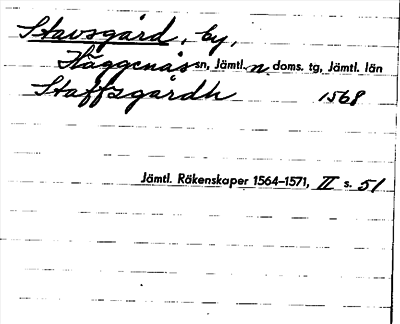 Stavsgård, by,
Häggenås sn, Jämtl. n. doms. tg, Jämtl. län
Staffzgårdh 1568
Jämtl. Räkenskaper 1564–1571, II s. 51